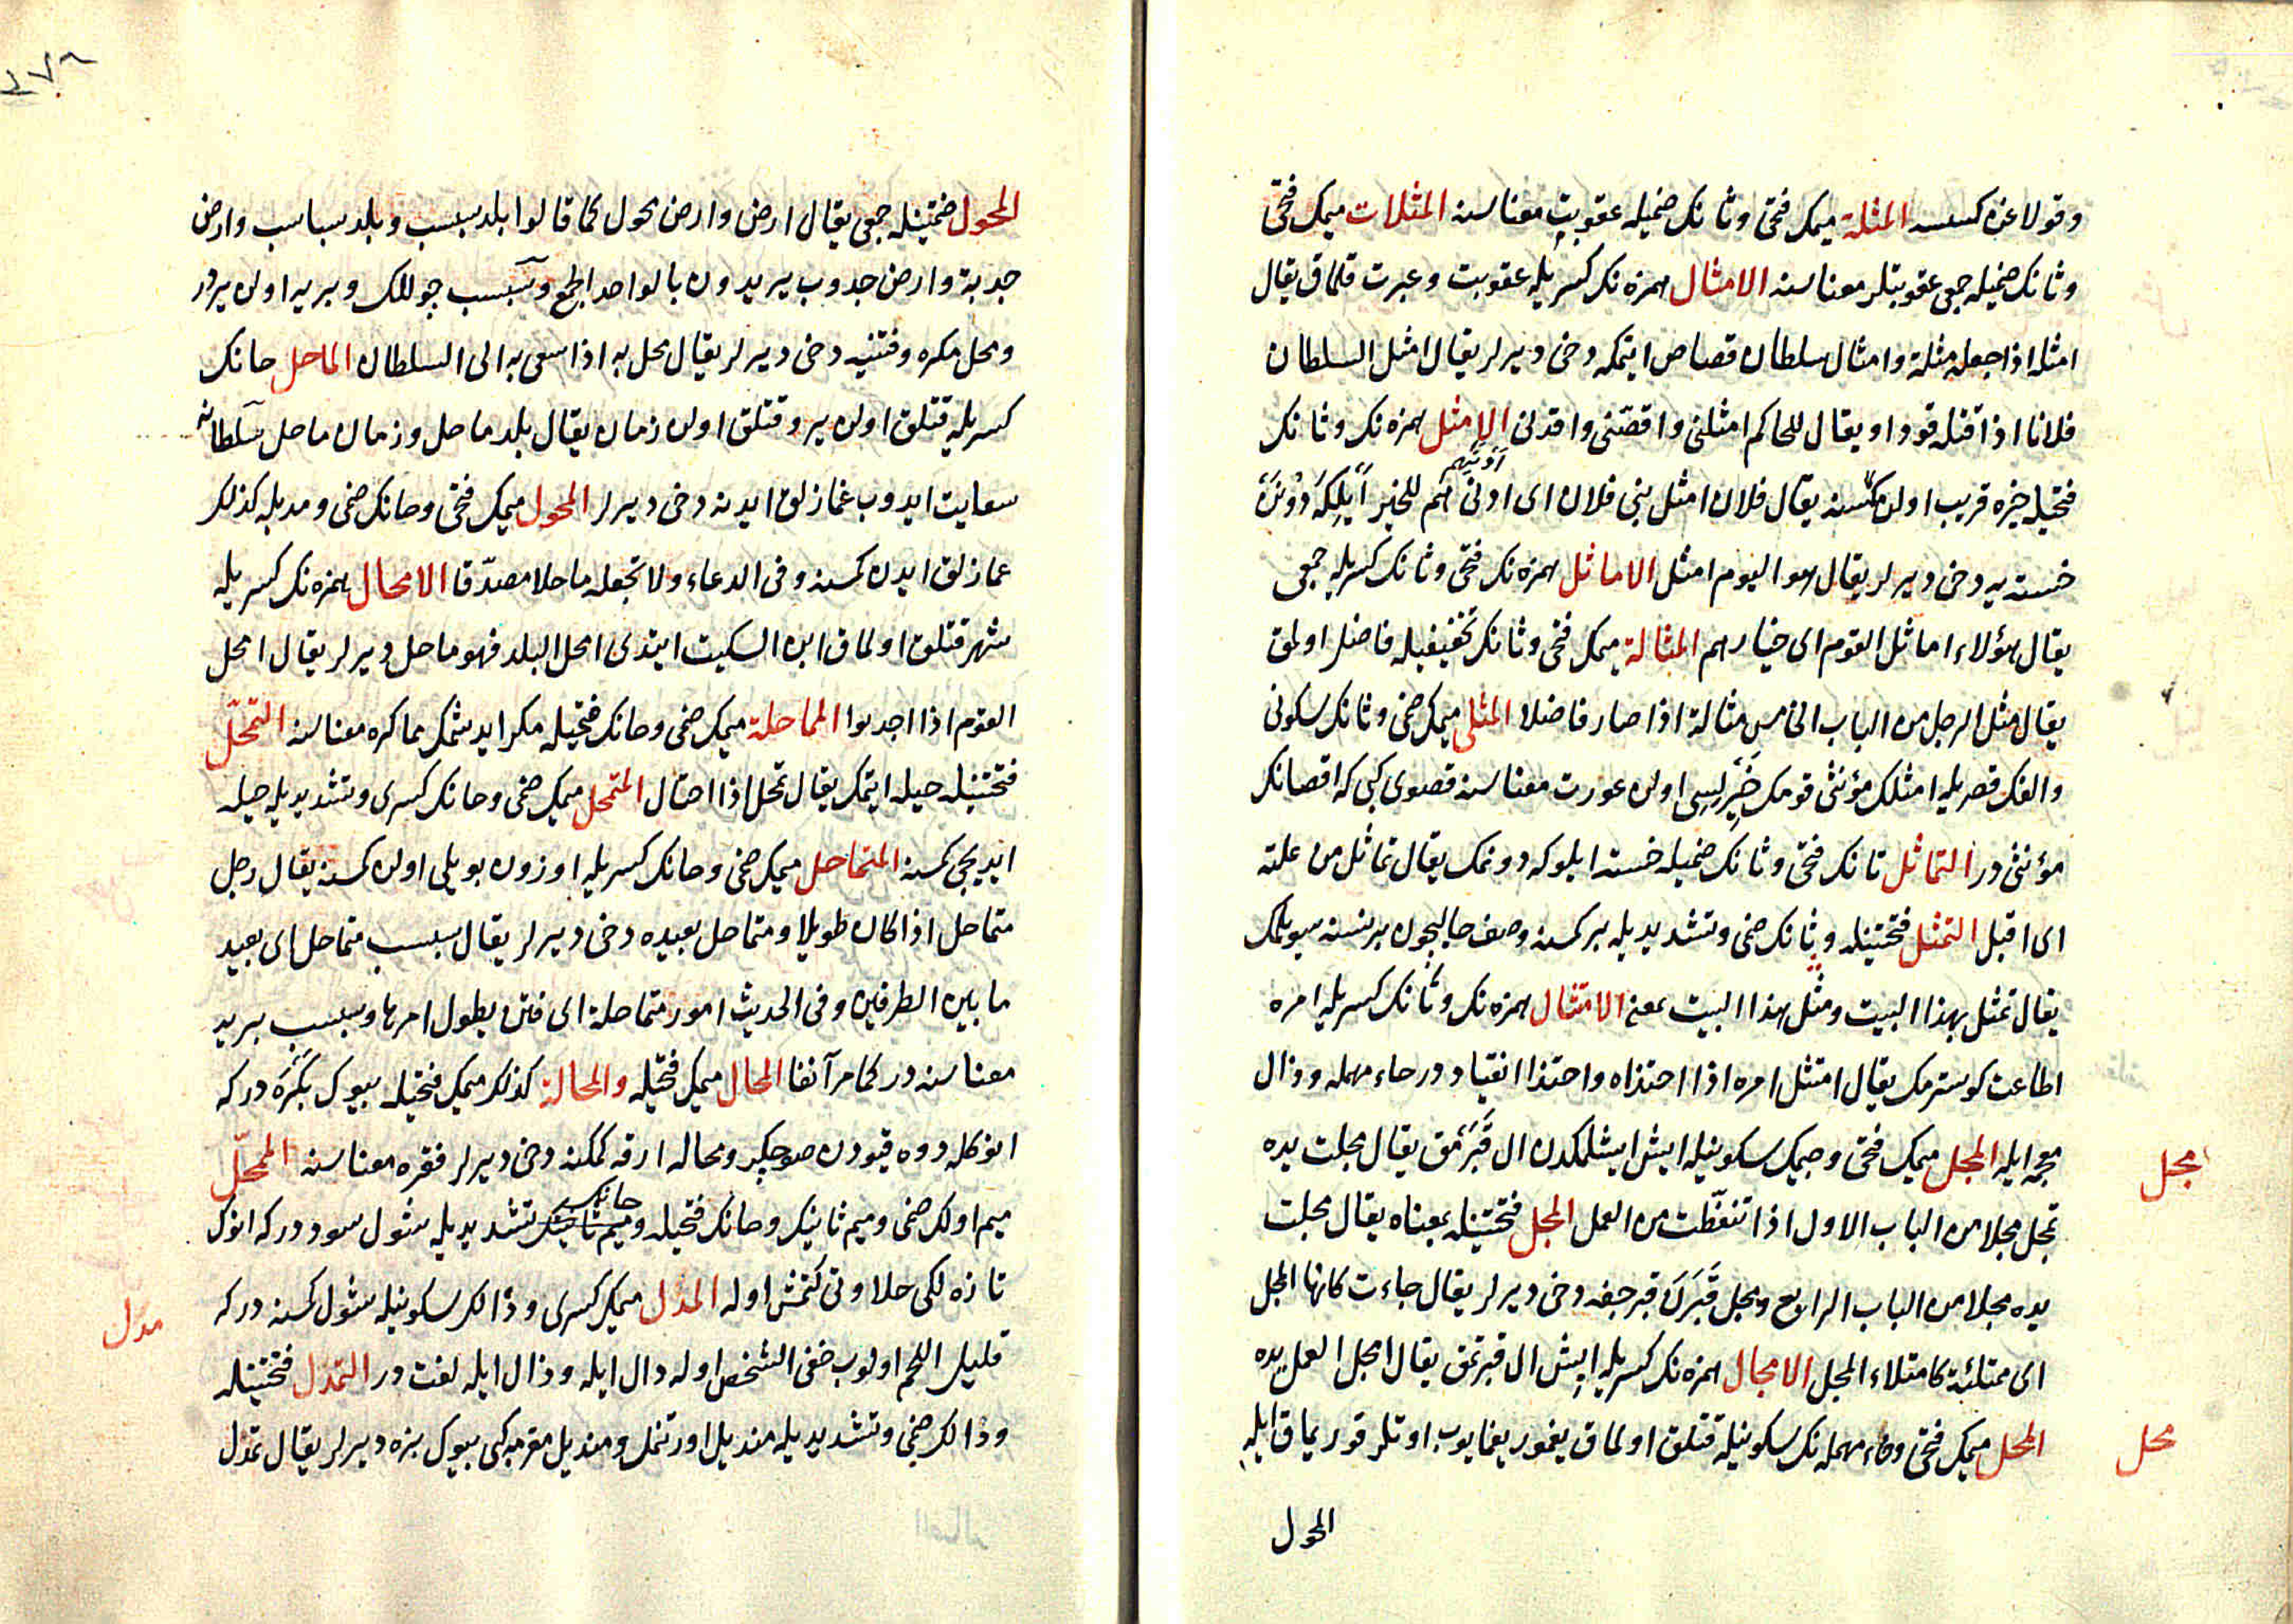 وقولاغن كسسه المثلة ميمك فتحى وثانك ضميله عقوبت معناسنه المثلات ميمك فتحى
وثانك ضميله جمعى عقوبتلر معناسنه الامثال همزه نك كسريله عقوبت وعبرت قلماق يقال
امثله اذا جعله مثلة وامثال سلطان قصاص ايتمكه دخى ديرلر يقال امثل السلطان
فلانا اذا قتله قودا ويقال للحاكم امثلنى واقصنى واقدنى الامثل همزه نك وثانك
فتحيله خيره قريب اولن كمسنه يقال فلان امثل بنى فلان اى ادنى هم للخير ايلكه دونن
ادنيهم
خسته يه دخى ديرلر يقال هو اليوم امثل الاماثل همزه نك فتحى وثانك كسريله جمعى
يقال هؤلاء اماثل القوم اى خيارهم المثالة ميمك فتحى وثانك تخفيفيله فاضل اولمق
يقال مثل الرجل من الباب الخامس مثالة اذا صار فاضلا المثلى ميمك ضمى وثانك سكونى
والفك قصريله امثلك مؤنثى قومك خيرليسى اولن عورت معناسنه قصوى كبى كه اقصانك
مؤنثى در التماثل تانك فتحى وثانك ضميله خسته ايلوكه دونمك يقال تماثل من علته
اى اقبل التمثل فتحتينله وثانك ضمى وتشديديله بر كمسنه وصف حاليچون بر نسنه سويلمك
يقال تمثل بهذا البيت ومثل هذا البيت بمعنى الامتثال همزه نك وتانك كسريله امره
اطاعت كوسترمك يقال امتثل امره اذا احتذاه واحتذا انقياد در حاء مهمله وذال
معجمه ايله المجل ميمك فتحى وجيمك سكونيله ايش ايشلمكدن ال قبرمق يقال مجلت يده
مجل
تمجل مجلا من الباب الاول اذا تنفطت من العمل المجل فتحتينله بمعناه يقال مجلت
يده مجلا من الباب الرابع ومجل قبرك قبرجغه دخى ديرلر يقال جاءت كانها المجل
اى ممتلئة كامتلاء المجل الامجال همزه نك كسريله ايش ال قبرتمق يقال امجل العمل يده
المحل ميمك فتحى وحاء مهمله نك سكونيله قتلق اولماق يغمور يغمايوب اوتلر قوريماق ايله
محل
المحول
المحول ضمتينله جمعى يقال ارض وارض محول كما قالوا بلد سبسب وبلد سباسب وارض
جدبة وارض جدوب يريدون بالواحد الجمع وسبسب چوللك وبريه اولن يردر
ومحل مكره وفتنيه دخى ديرلر يقال محل به اذا سعى به الى السلطان الماحل حانك
كسريله قتلق اولن ير وقتلق اولن زمان يقال بلد ماحل وزمان ماحل سلطانه
سعايت ايدوب غمازلق ايدنه دخى ديرلر المحول ميمك فتحى وحانك ضمى ومديله كذلك
غمازلق ايدن كمسنه وفى الدعاء ولا تجعله ماحلا مصدقا الامحال همزه نك كسريله
شهر قتلق اولماق ابن السكيت ايتدى امحل البلد فهو ماحل ديرلر يقال امحل
القوم اذا اجدبوا المماحلة ميمك ضمى وحانك فتحيله مكر ايدشمك مماكره معناسنه التمحل
فتحتينله حيله ايتمك يقال تمحل اذا احتال المتمحل ميمك ضمى وحانك كسرى وتشديديله حيله
ايديجى كمسنه المتماحل ميمك ضمى وحانك كسريله اوزون بويلى اولن كمسنه يقال رجل
متماحل اذا كان طويلا ومتماحل بعيده دخى ديرلر يقال سبسب متماحل اى بعيد
ما بين الطرفين وفى الحديث امور متماحلة اى فتن يطول امرها وسبسب بريه
معناسنه در كما مر آنفا المحال ميمك فتحيله والمحالة كذلك ميمك فتحيله بيوك بكره در كه
انوكله دوه قيودن صو چكر ومحاله ارقه كمكنه دخى ديرلر فقره معناسنه الممحل
ميم اولك ضمى وميم ثانينك وحانك فتحيله وحانك تشديديله شول سود در كه انوك
تازه لكى حلاوتى كتمش اوله المدل ميمك كسرى ودالك سكونيله شول كمسنه در كه
مدل
قليل اللحم اولوب خفى الشخص اوله دال ايله وذال ايله لغت در التمدل فتحتينله
ودالك ضمى وتشديديله منديل اورتنمك ومنديل مقرمه كبى بيوك بزه ديرلر يقال تمدل